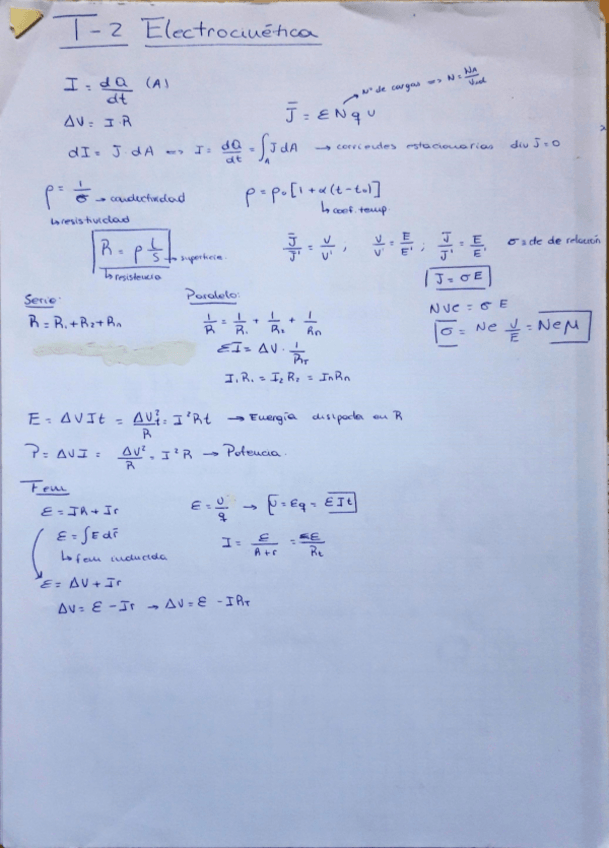 T-2 Electrocinética
I = dQ/dt (A)
Nº de cargas => N = NA/Vmol
ΔV = I·R
J̄ = ε N q v
dI = J·dA => I = dQ/dt = ∫_A J dA → corrientes estacionarias div J = 0
ρ = 1/σ → conductividad
↳ resistividad
ρ = ρ₀[1 + α(t - t₀)]
↳ coef. temp.
R = ρ L/S → superficie
↳ resistencia
J̄/J̄' = V/V' , V/V' = E/E' ; J̄/J̄' = E/E' σ = cte de relación
J = σE
Serie:
R = R₁ + R₂ + Rn
Paralelo:
1/R = 1/R₁ + 1/R₂ + 1/Rn
ΣI = ΔV · 1/RT
I₁R₁ = I₂R₂ = InRn
NVe = σ E
σ = Ne V/E = Neμ
E = ΔVIt = ΔV²/R t = I²Rt → Energía disipada en R
P = ΔVI = ΔV²/R = I²R → Potencia.
Fem
ε = IR + Ir
ε = ∫E dr̄
↳ fem inducida
ε = ΔV + Ir
ΔV = ε - Ir → ΔV = ε - IRT
ε = U/q → U = εq = εIt
I = ε/(R+r) = Σε/Rt